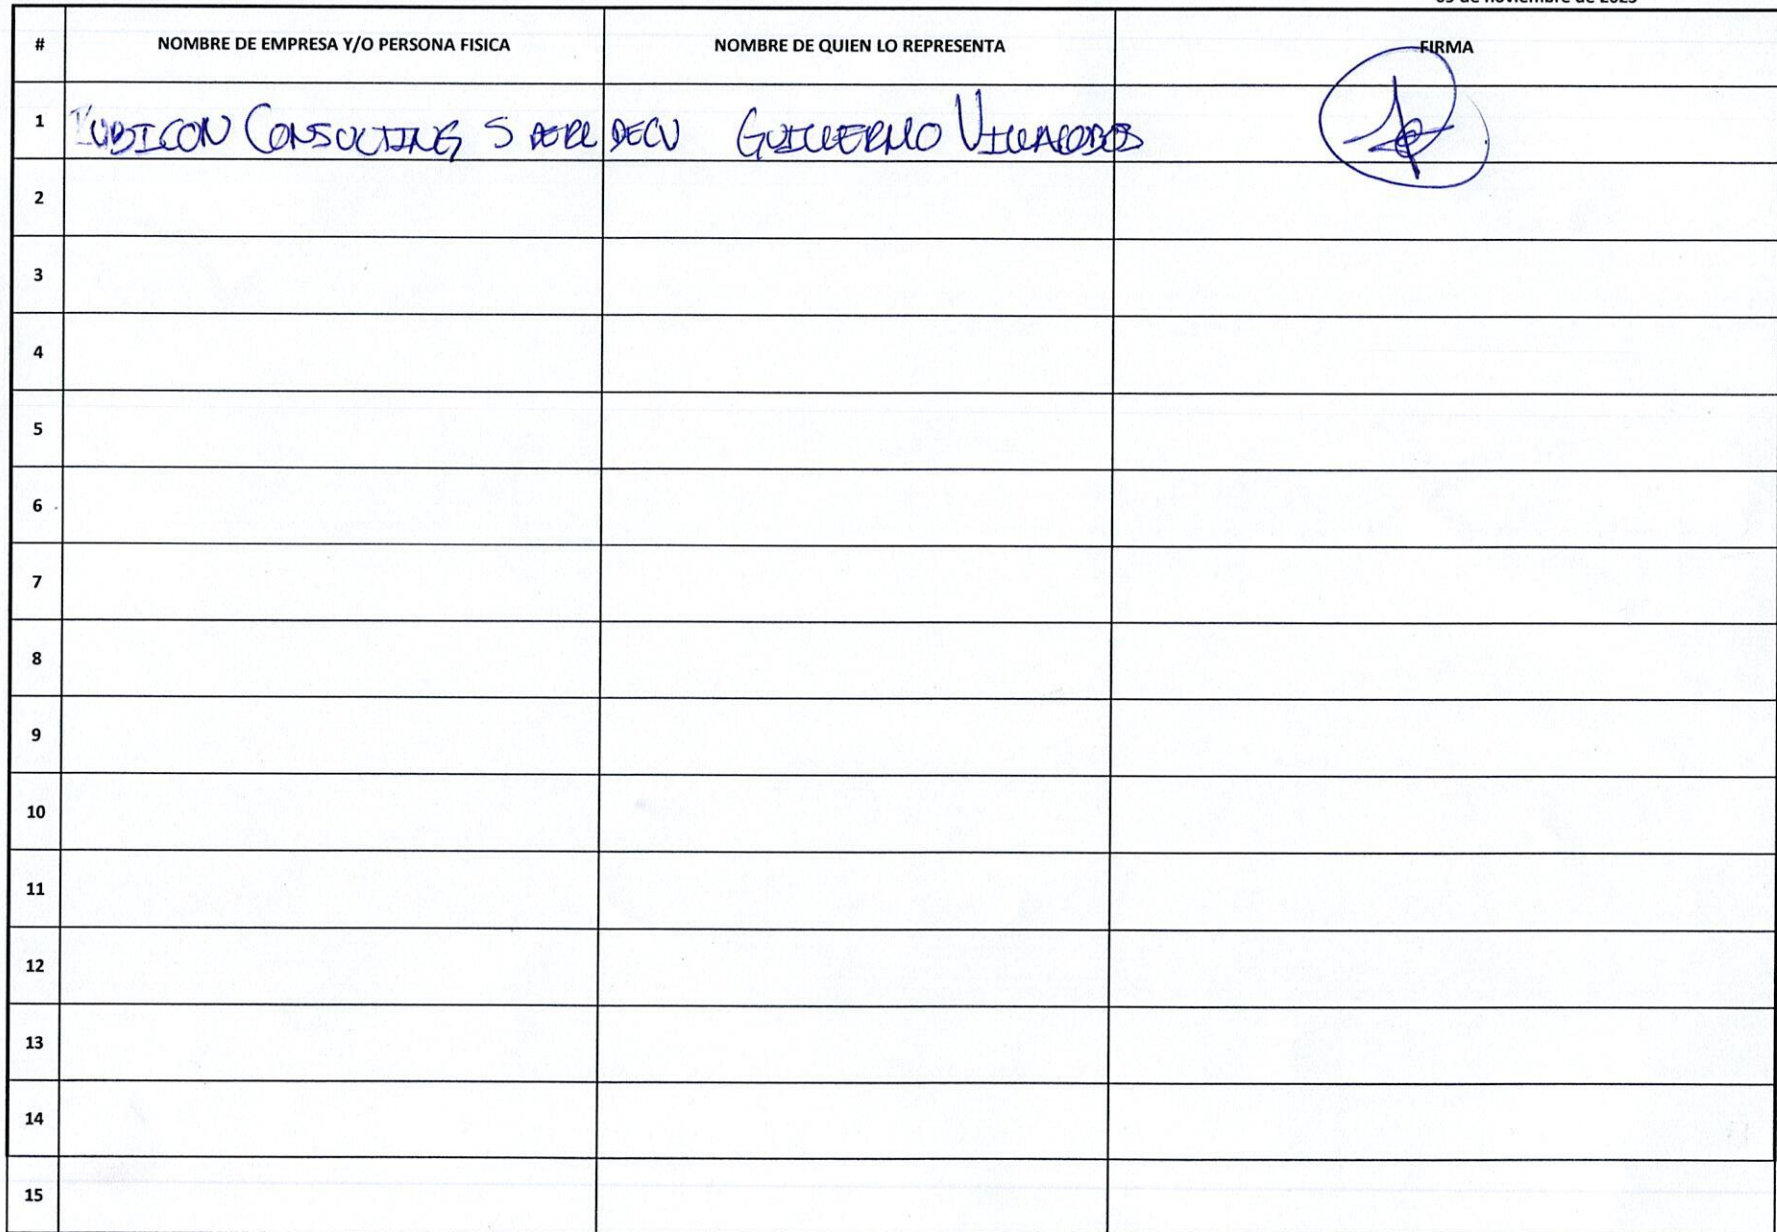 de noviembre de 2023
# NOMBRE DE EMPRESA Y/O PERSONA FISICA NOMBRE DE QUIEN LO REPRESENTA FIRMA
1 RUBICON CONSULTING S DE RL DE CV GUILLERMO VILLALOBOS
2
3
4
5
6
7
8
9
10
11
12
13
14
15